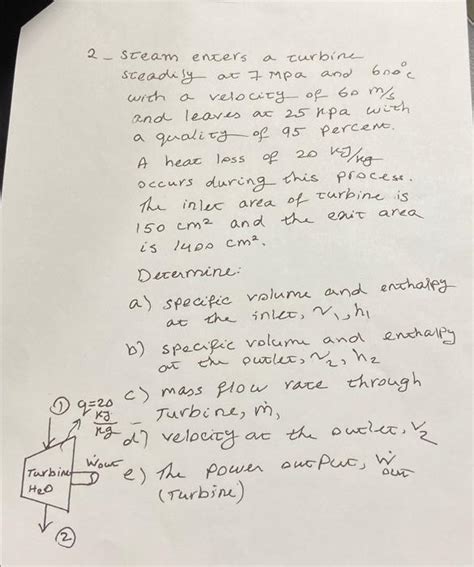 2 - Steam enters a turbine
steadily at 7 MPa and 600°C
with a velocity of 60 m/s
and leaves at 25 kPa with
a quality of 95 percent.
A heat loss of 20 kJ/kg
occurs during this process.
The inlet area of turbine is
150 cm² and the exit area
is 1400 cm².
Determine:
a) specific volume and enthalpy
at the inlet, v₁, h₁
b) specific volume and enthalpy
at the outlet, v₂, h₂
c) mass flow rate through
Turbine, ṁ,
d) velocity at the outlet, V₂
e) The power output, Ẇout
(Turbine)
① q=20 kJ/kg
Turbine
H₂O
Ẇout
②